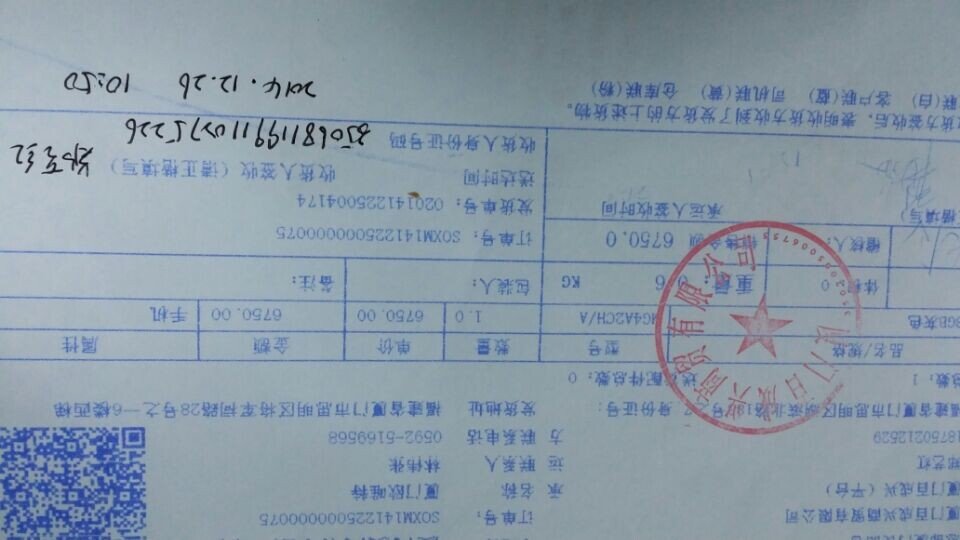 订单号: SOXM141225000000075
厦门百成兴商贸有限公司
承 名称 厦门欧唯特
厦门百成兴（平台）
运 联系人 林伟张
郑艺红
方 联系电话 0592-5169568
18750212529
发货地址 福建省厦门市思明区将军祠路28号之一6楼西梯
总数: 1
送配件总数: 0
品名/规格 型号 数量 单价 金额 属性
8GB灰色 MG4A2CH/A 1.0 6750.00 6750.00 手机
体积: 0 重量: 0.6 KG 包装人: 备注:
稽核人: 销售金额 6750.0 订单号: SOXM141225000000075
发货单号: 020141225004174
承运人签收时间 送达时间
收货人签收（请正楷填写）
收货人身份证号码 350681199111025226
货方签收后，表明收货方收到了发货方的上述货物。
联(白) 客户联(蓝) 司机联(黄) 仓库联(粉)
2014.12.26 10:50